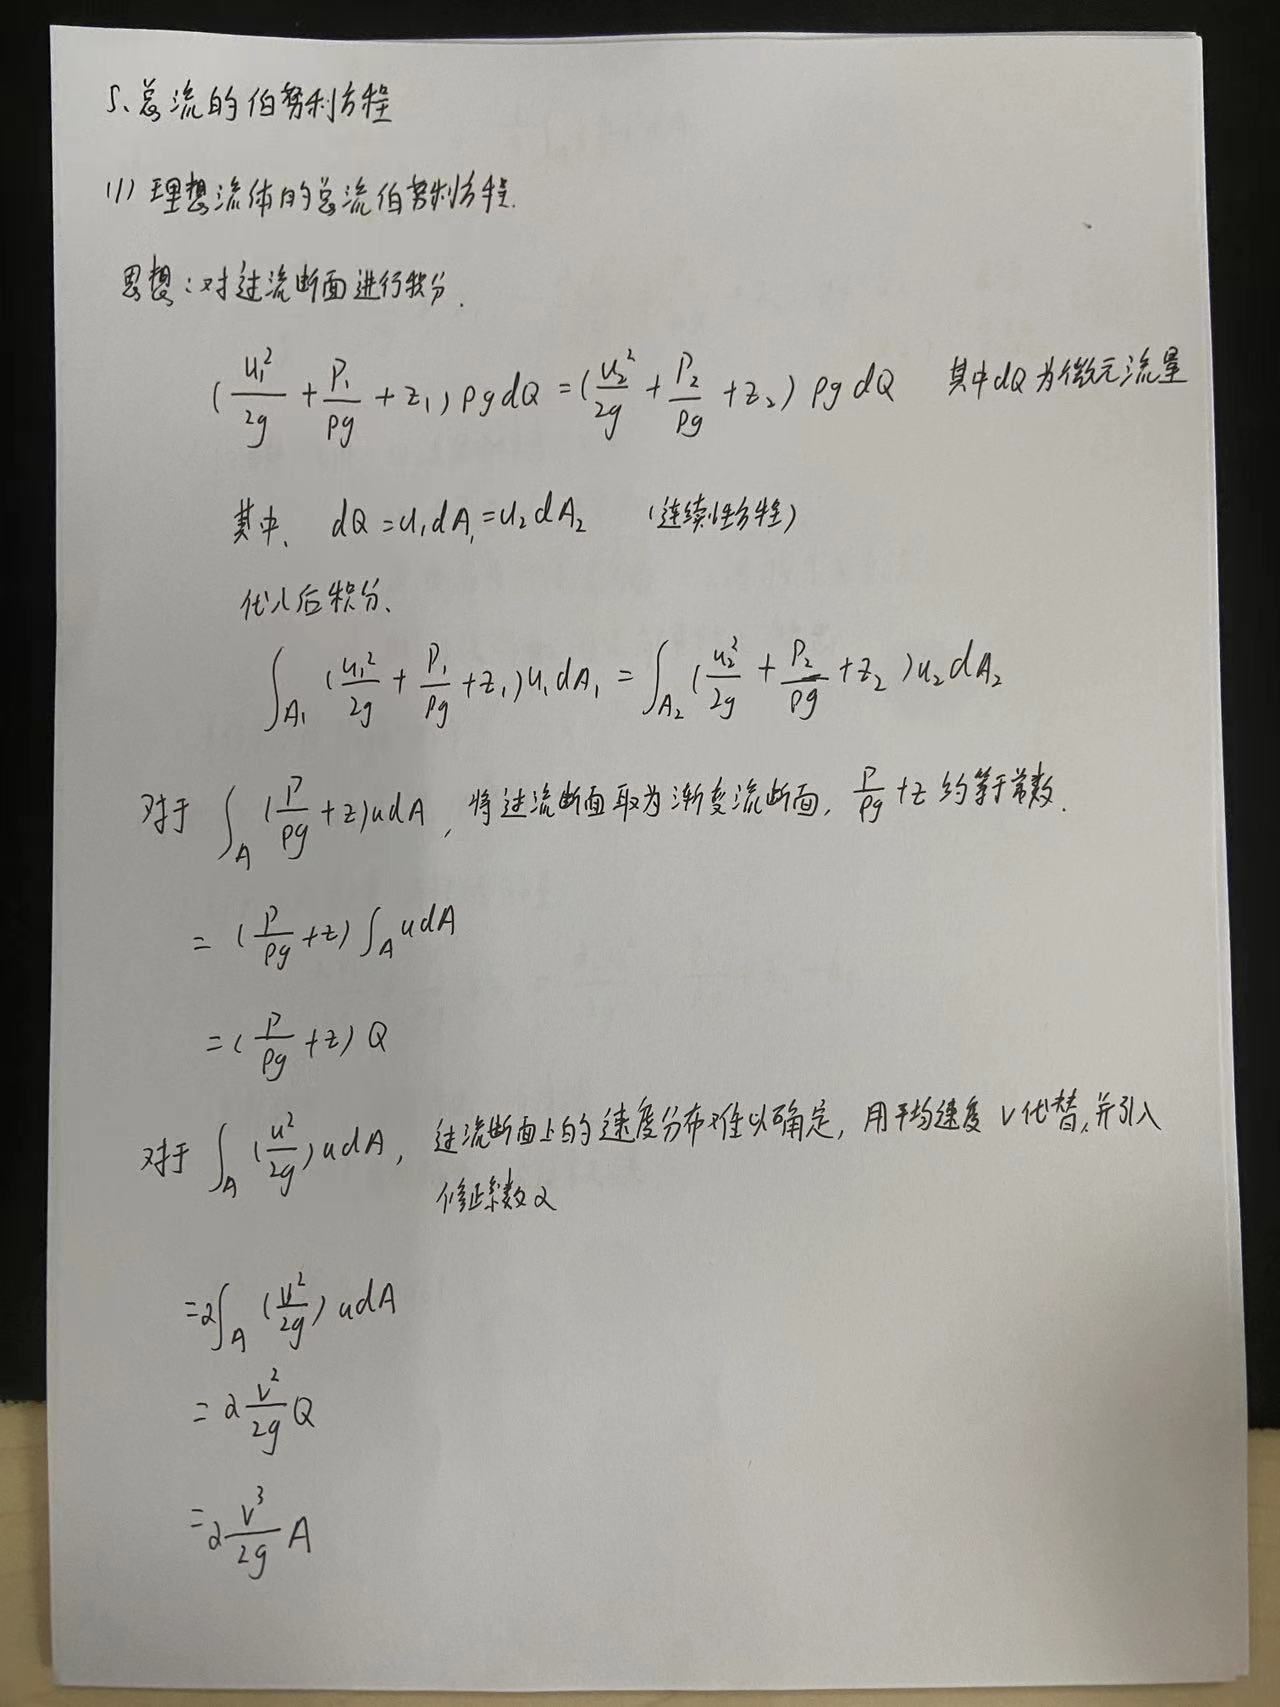 5、总流的伯努利方程
(1) 理想流体的总流伯努利方程.
思想:对过流断面进行积分.
(u₁²/2g + P₁/ρg + z₁) ρg dQ = (u₂²/2g + P₂/ρg + z₂) ρg dQ 其中dQ为微元流量
其中、 dQ = u₁dA₁ = u₂dA₂ (连续性方程)
代入后积分、
∫_A₁ (u₁²/2g + P₁/ρg + z₁) u₁dA₁ = ∫_A₂ (u₂²/2g + P₂/ρg + z₂) u₂dA₂
对于 ∫_A (P/ρg + z) udA, 将过流断面取为渐变流断面, P/ρg + z 约等于常数.
= (P/ρg + z) ∫_A udA
= (P/ρg + z) Q
对于 ∫_A (u²/2g) udA, 过流断面上的速度分布难以确定, 用平均速度 v代替, 并引入
修正系数α
= α∫_A (v²/2g) udA
= α v²/2g Q
= α v³/2g A